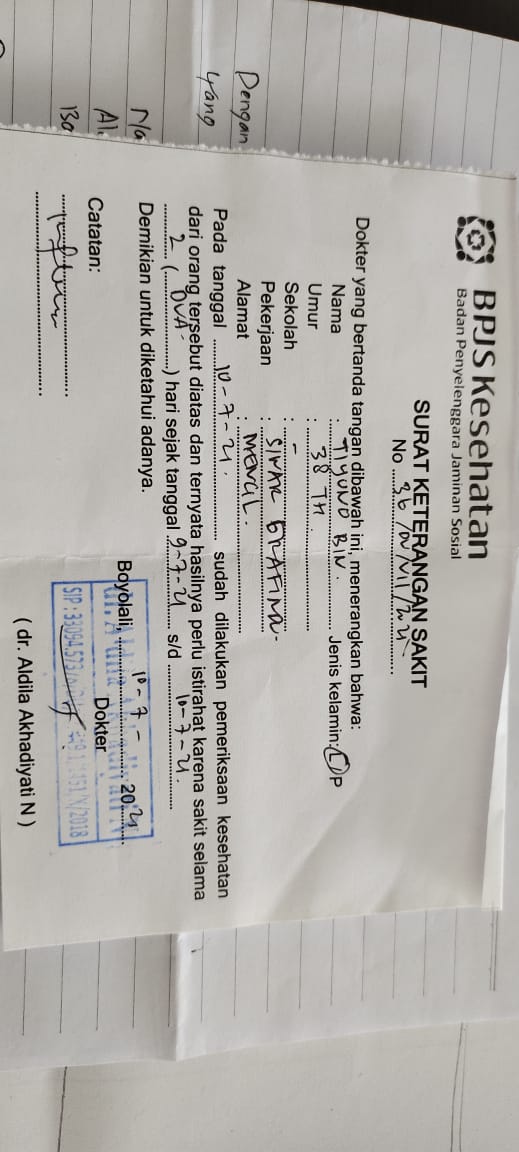 BPJS Kesehatan
Badan Penyelenggara Jaminan Sosial
SURAT KETERANGAN SAKIT
No. 36
Dokter yang bertanda tangan dibawah ini, menerangkan bahwa:
Nama : TIYONO BIN. Jenis kelamin: L/P
Umur : 38 TH.
Sekolah : -
Pekerjaan : SINAR GRAFINA.
Alamat : MENCIL.
Pada tanggal 10-7-21. sudah dilakukan pemeriksaan kesehatan
dari orang tersebut diatas dan ternyata hasilnya perlu istirahat karena sakit selama
2 (DUA) hari sejak tanggal 9-7-21 s/d 10-7-21.
Demikian untuk diketahui adanya.
Boyolali, 10-7- 2021
Catatan:
Dokter
( dr. Aldila Akhadiyati N )
Dengan
yang